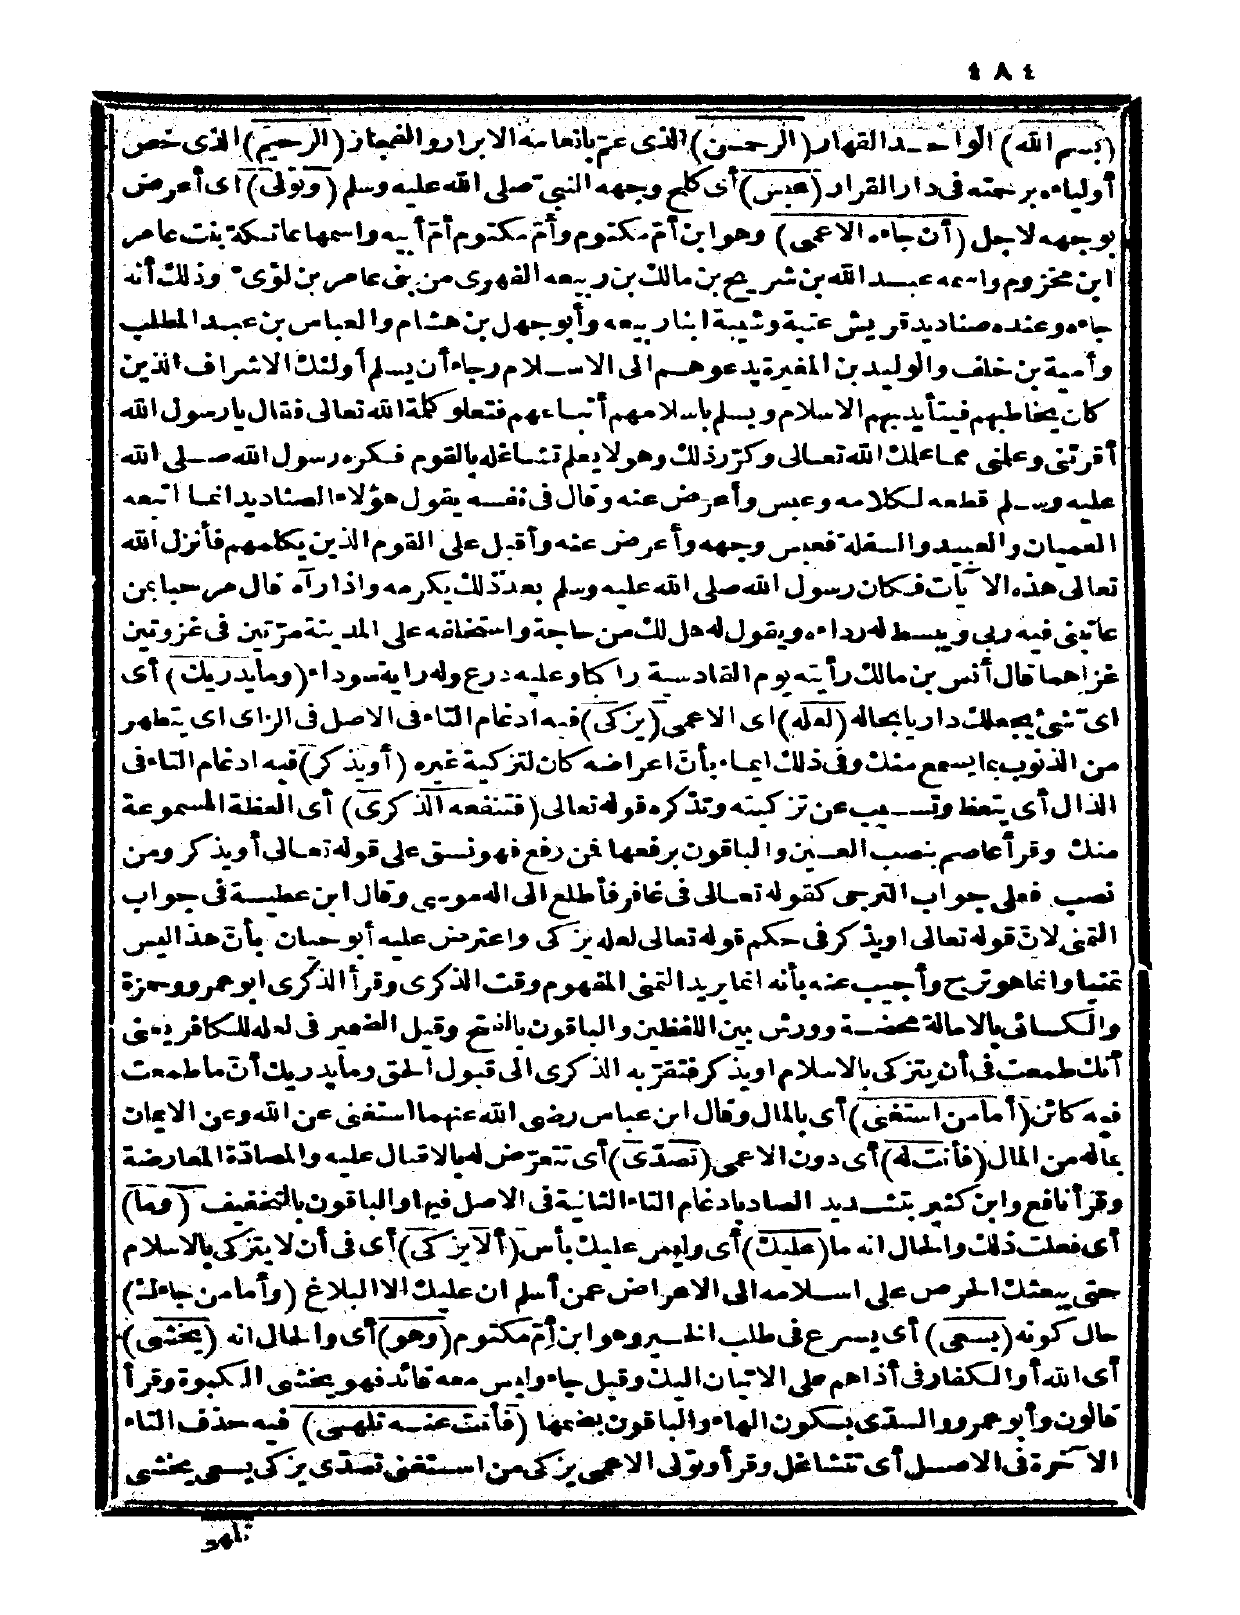 ٤٨٤
(بسم الله) الواحد القهار (الرحمن) الذى عمّ بانعامه الابرار والفجار (الرحيم) الذى خص
أولياءه برحمته فى دار القرار (عبس) أى كلح وجهه النبىّ صلى الله عليه وسلم (وتولى) اى أعرض
بوجهه لاجل (أن جاءه الاعمى) وهو ابن أمّ مكتوم وأمّ مكتوم أمّ أبيه واسمها عاتكة بنت عامر
ابن مخزوم واسمه عبد الله بن شريح بن مالك بن ربيعه الفهرى من بنى عامر بن لؤىّ وذلك أنه
جاءه وعنده صناديد قريش عتبة وشيبة ابنا ربيعه وأبو جهل بن هشام والعباس بن عبد المطلب
وأمية بن خلف والوليد بن المغيرة يدعوهم الى الاسلام رجاء أن يسلم أولئك الاشراف الذين
كان يخاطبهم فيتأيد بهم الاسلام ويسلم باسلامهم أتباعهم فتعلو كلمة الله تعالى فقال يا رسول الله
أقرئنى وعلمنى مما علمك الله تعالى وكرّر ذلك وهو لا يعلم تشاغله بالقوم فكره رسول الله صلى الله
عليه وسلم قطعه لكلامه وعبس وأعرض عنه وقال فى نفسه يقول هؤلاء الصناديد انما اتبعه
العميان والعبيد والسفلة فعبس وجهه وأعرض عنه وأقبل على القوم الذين يكلمهم فأنزل الله
تعالى هذه الآيات فكان رسول الله صلى الله عليه وسلم بعد ذلك يكرمه واذا رآه قال مرحبا بمن
عاتبنى فيه ربى ويبسط له رداءه ويقول له هل لك من حاجة واستخلفه على المدينة مرّتين فى غزوتين
غزاهما قال أنس بن مالك رأيته يوم القادسية راكبا وعليه درع وله راية سوداء (وما يدريك) أى
اى شئ يجعلك داريا بحاله (لعله) اى الاعمى (يزكى) فيه ادغام التاء فى الاصل فى الزاى اى يتطهر
من الذنوب بما يسمع منك وفى ذلك ايماء بأنّ اعراضه كان لتزكية غيره (أو يذكر) فيه ادغام التاء فى
الذال أى يتعظ وتسبب عن تزكيته وتذكره قوله تعالى (فتنفعه الذكرى) أى العظة المسموعة
منك وقرأ عاصم بنصب العين والباقون برفعها فمن رفع فهو نسق على قوله تعالى أو يذكر ومن
نصب فعلى جواب الترجى كقوله تعالى فى غافر فأطلع الى اله موسى وقال ابن عطية فى جواب
التمنى لانّ قوله تعالى او يذكر فى حكم قوله تعالى لعله يزكى واعترض عليه أبو حيان بأنّ هذا ليس
تمنيا وانما هو ترج وأجيب عنه بأنه انما يريد التمنى المفهوم وقت الذكرى وقرأ الذكرى ابو عمرو وحمزة
والكسائى بالامالة محضة وورش بين اللفظين والباقون بالفتح وقيل الضمير فى لعله للكافر يعنى
أنك طمعت فى أن يتزكى بالاسلام او يذكر فتقرّبه الذكرى الى قبول الحق وما يدريك أنّ ما طمعت
فيه كائن (أما من استغنى) أى بالمال وقال ابن عباس رضى الله عنهما استغنى عن الله وعن الايمان
بماله من المال (فأنت له) أى دون الاعمى (تصدّى) أى تتعرّض له بالاقبال عليه والمصادّة المعارضة
وقرأ نافع وابن كثير بتشديد الصاد بادغام التاء الثانية فى الاصل فيها والباقون بالتخفيف (وما)
أى فعلت ذلك والحال انه ما (عليك) أى وليس عليك بأس (ألا يزكى) أى فى أن لا يتزكى بالاسلام
حتى يبعثك الحرص على اسلامه الى الاعراض عمن أسلم ان عليك الا البلاغ (وأما من جاءك)
حال كونه (يسعى) أى يسرع فى طلب الخير وهو ابن أمّ مكتوم (وهو) أى والحال انه (يخشى)
أى الله أو الكفار فى أذاهم على الاتيان اليك وقيل جاء وليس معه قائد فهو يخشى الكبوة وقرأ
قالون وأبو عمرو والسدّى بسكون الهاء والباقون بضمها (فأنت عنه تلهى) فيه حذف التاء
الآخرة فى الاصل أى تتشاغل وقرأ وتولى الاعمى يزكى من استغنى تصدّى يزكى يسعى يخشى
تلهى